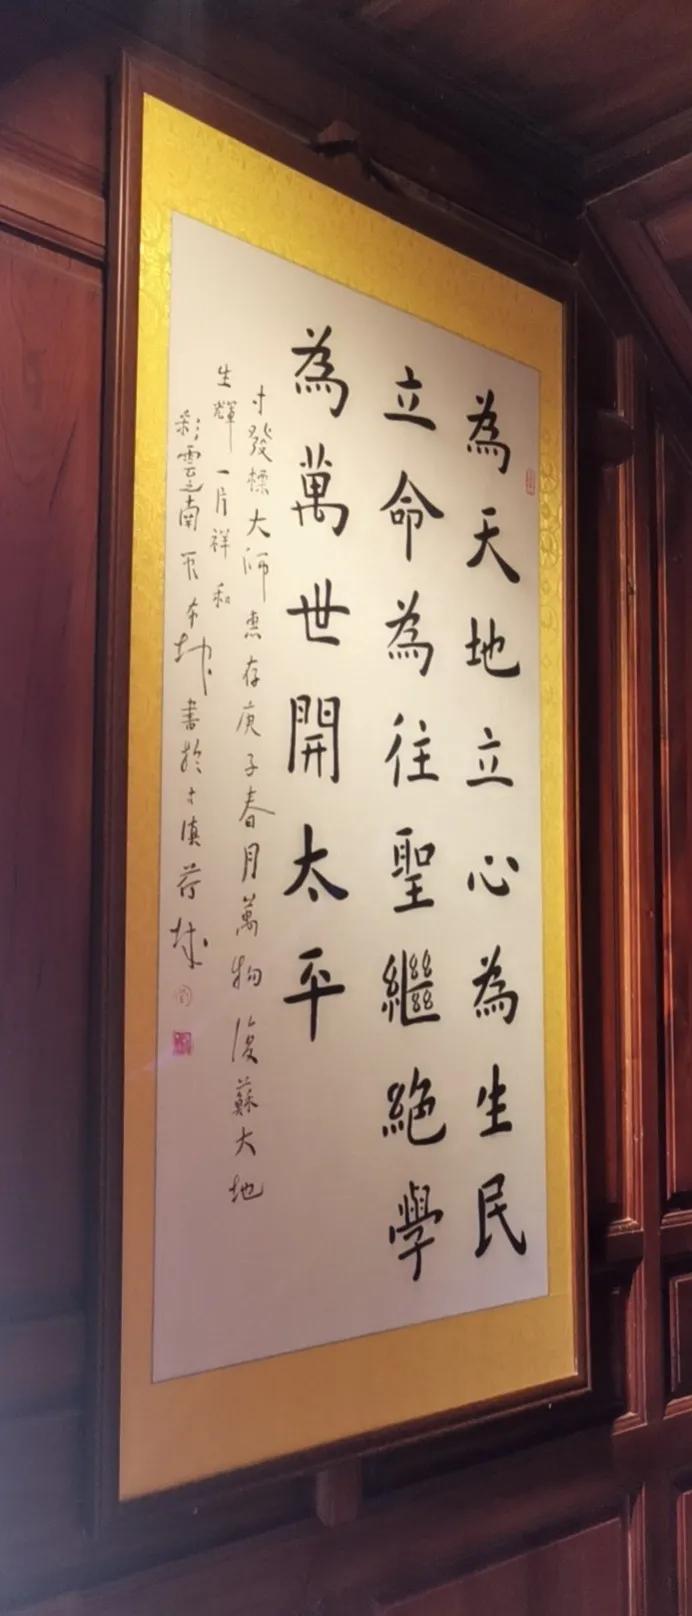 為天地立心為生民
立命為往聖繼絕學
為萬世開太平
寸發標大師惠存庚子春月萬物復蘇大地
生輝一片祥和
彩雲之南 書於古滇